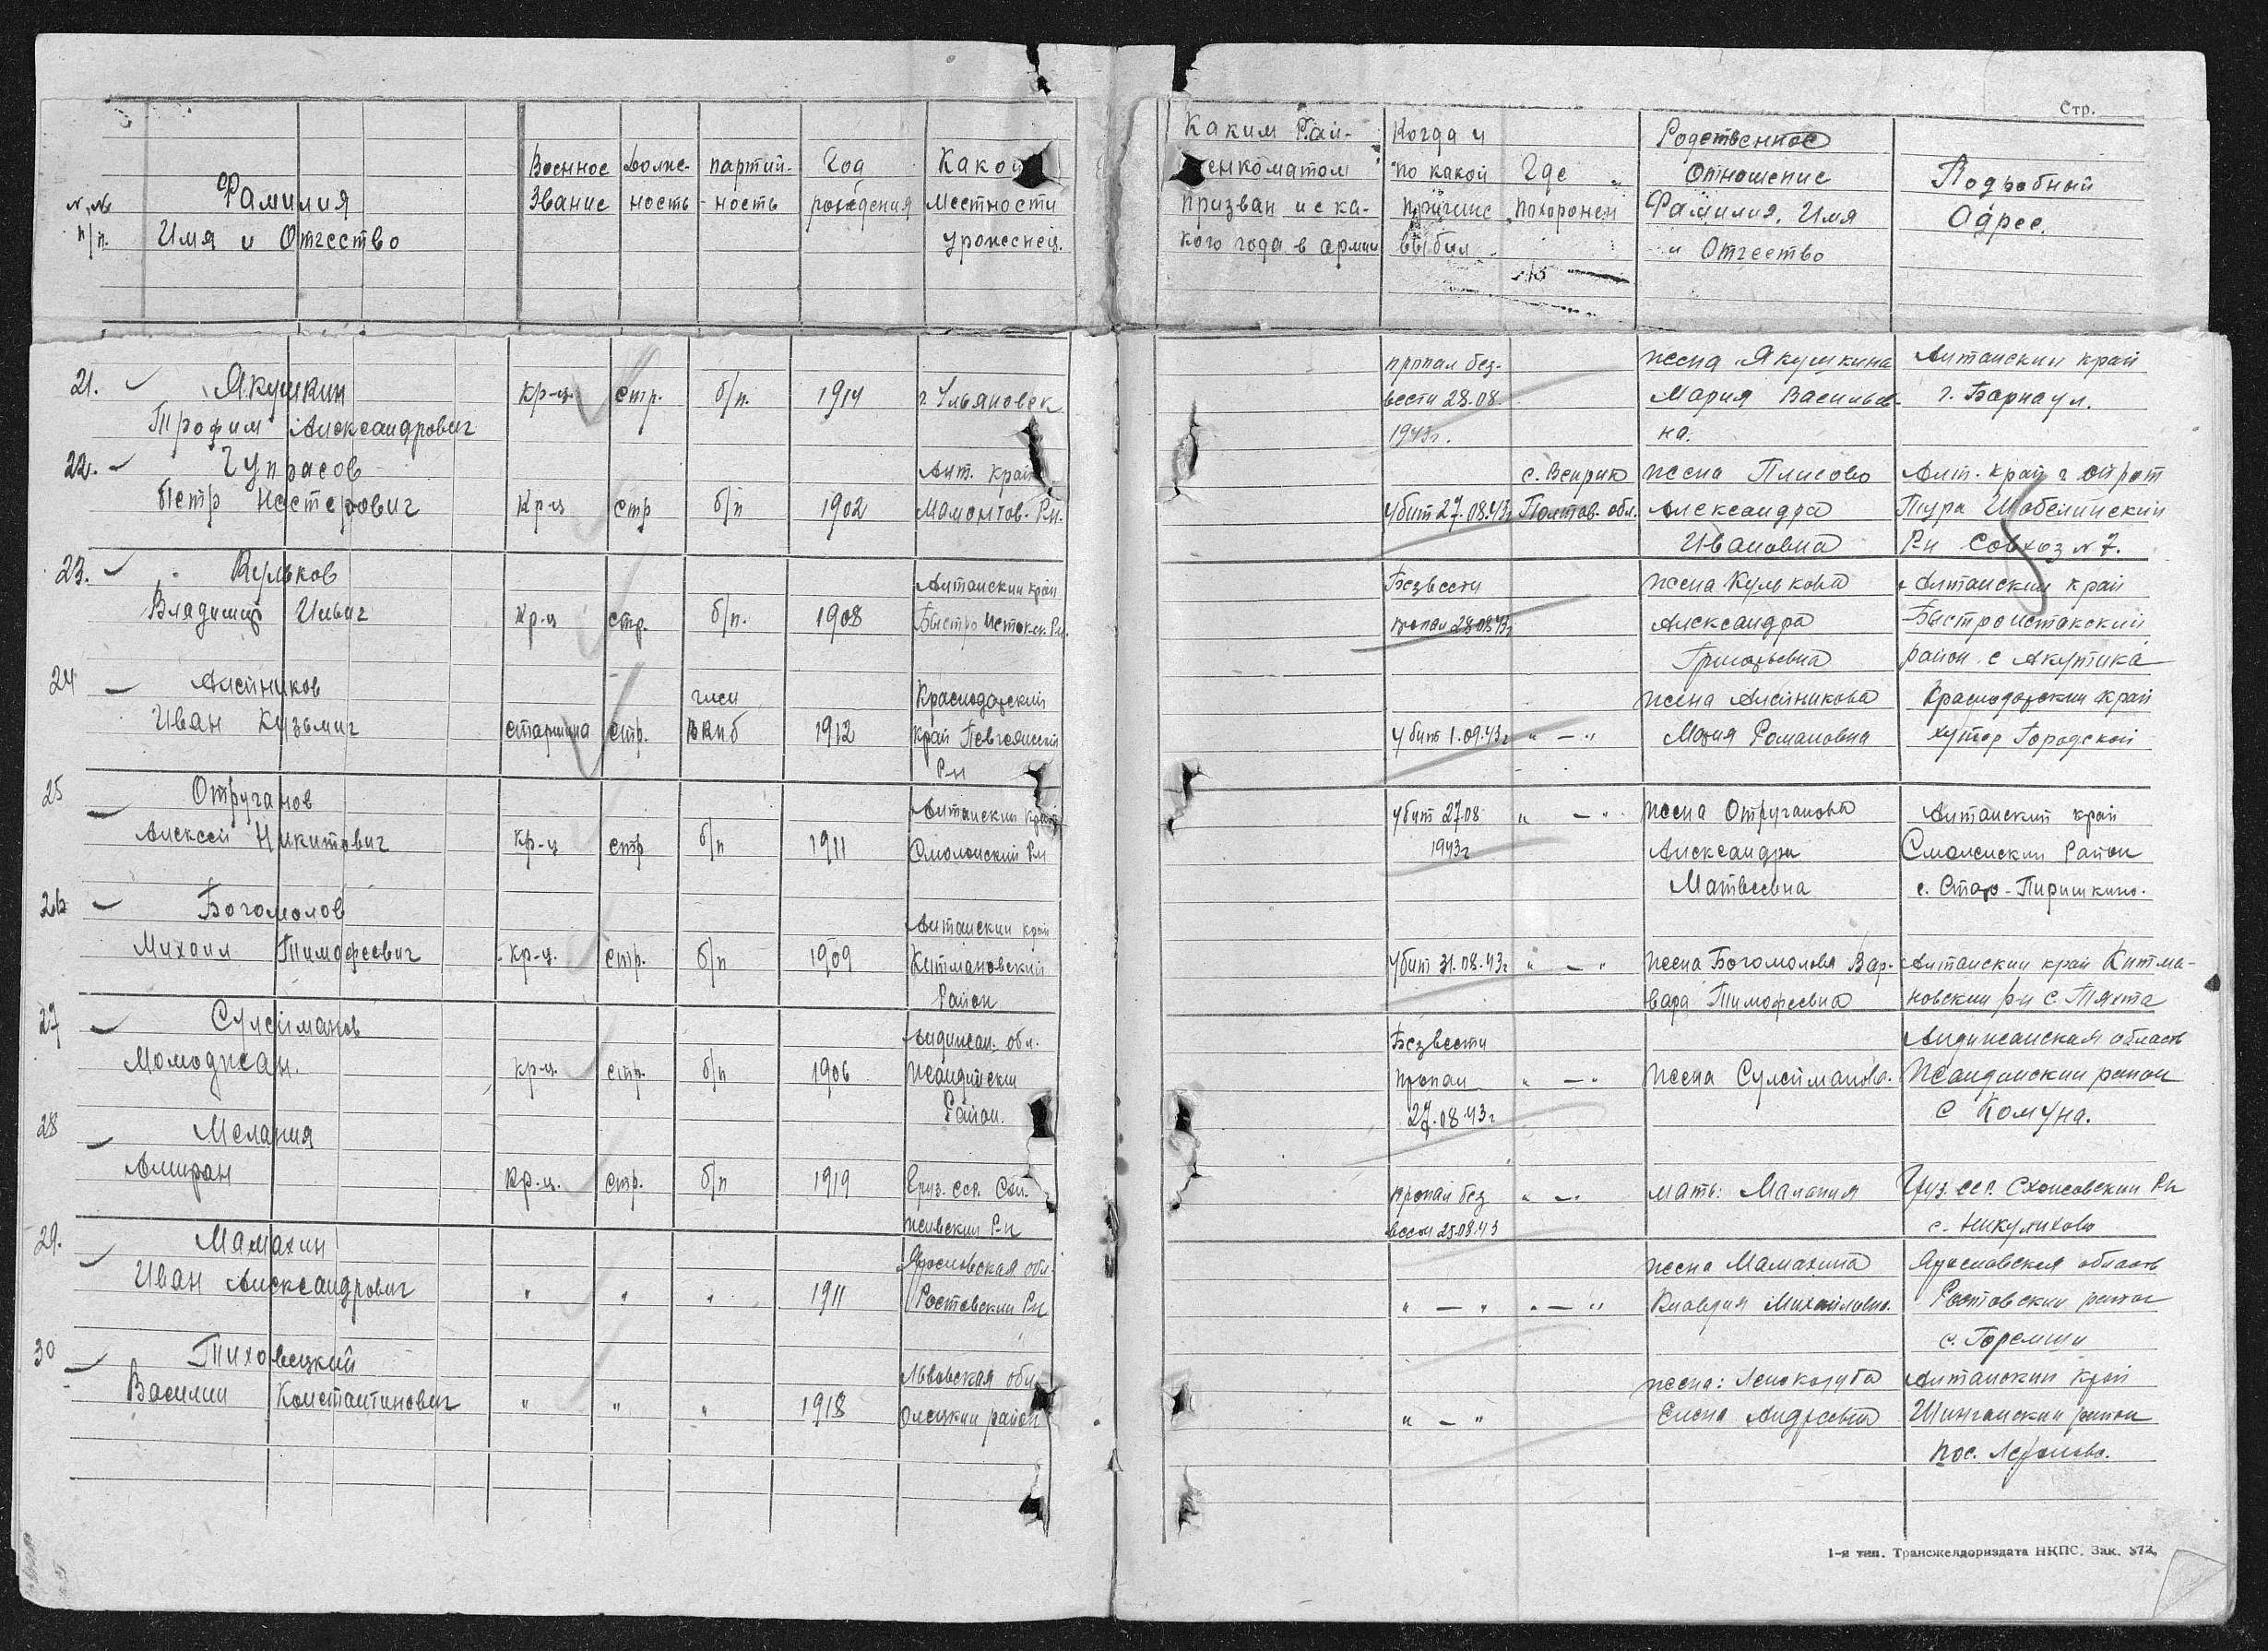 Стр.
№№ п/п.
Фамилия
Имя и Отчество
Военное Звание
Должность
партийность
Год рождения
Какой местности уроженец.
Каким Рай-
енкоматом
призван и ка-
кого года в армии
Когда и
по какой
причине
выбыл
Где
похоронен
Родственное
Отношение
Фамилия, Имя
и Отчество
Подробный
Адрес.
21. Якушкин
Трофим Александрович
кр-ц. стр. б/п. 1914 г. Ульяновск
пропал без-
вести 28.08.
1943г.
жена Якушкина
Мария Василье-
на.
Алтайский край
г. Барнаул.
22. Чупрасов
Петр Нестерович
Кр-ц стр б/п 1902
Алт. край
Мамонтов. Р-н.
убит 27.08.43г
с. Веприк
Полтав. обл.
жена Плисово
Александра
Ивановна
Алт. край г Ойрот
Тура Шабелинский
Р-н Совхоз №7.
23. Кульков
Владимир Ильич
Кр-ц стр. б/п. 1908
Алтайский край
Быстро Истокск. Р-н.
Безвести
пропал 28.08.43г
жена Кулькова
Александра
Григорьевна
Алтайский край
Быстроистокский
район с Акутиха
24 Алейников
Иван Кузьмич
старшина стр.
член
ВКПб
1912
Краснодарский
край
Р-н
убит 1.09.43г " — "
жена Алейникова
Мария Романовна
Краснодарский край
хутор Городской
25 Отруганов
Алексей Никитович
кр-ц стр б/п 1911
Алтайский край
Смоленский Р-н
убит 27.08
1943г
" — "
жена Отруганова
Александра
Матвеевна
Алтайский край
Смоленский Район
с. Старо-Пиришкино.
26 Богомолов
Михаил Тимофеевич
кр-ц. стр. б/п 1909
Алтайский край
Китмановский
Район
убит 31.08.43г " — "
жена Богомолова Вар-
вара Тимофеевна
Алтайский край Китма-
новский р-н с. Тяхта
27 Сулейманов
Момоджан.
кр-ц. стр. б/п 1906
Андижан. обл.
Район.
Безвести
пропал
27.08.43г
" — "
жена Сулейманова.
Андижанская область
Жандамский район
с Комуна.
28 Мелания
Амиран
кр-ц. стр. б/п 1919
Груз. ССР. Схо-
жевский Р-н
пропал без
вести 25.08.43
" — "
мать: Малания
Груз. ССР. Схожсовский Р-н
с. Никулихово
29. Мамахин
Иван Александрович
" " " 1911
Ярославская обл.
Ростовский Р-н
" — " " — "
жена Мамахина
Клавдия Михайловна.
Ярославская область
Ростовский район
с. Горемши
30 Тиховецкий
Василий Константинович
" " " 1918
Львовская обл.
Олецкий район
" — "
жена:
Елена Андреевна
Алтайский край
район
пос.
1-я тип. Трансжелдориздата НКПС. Зак. 572.